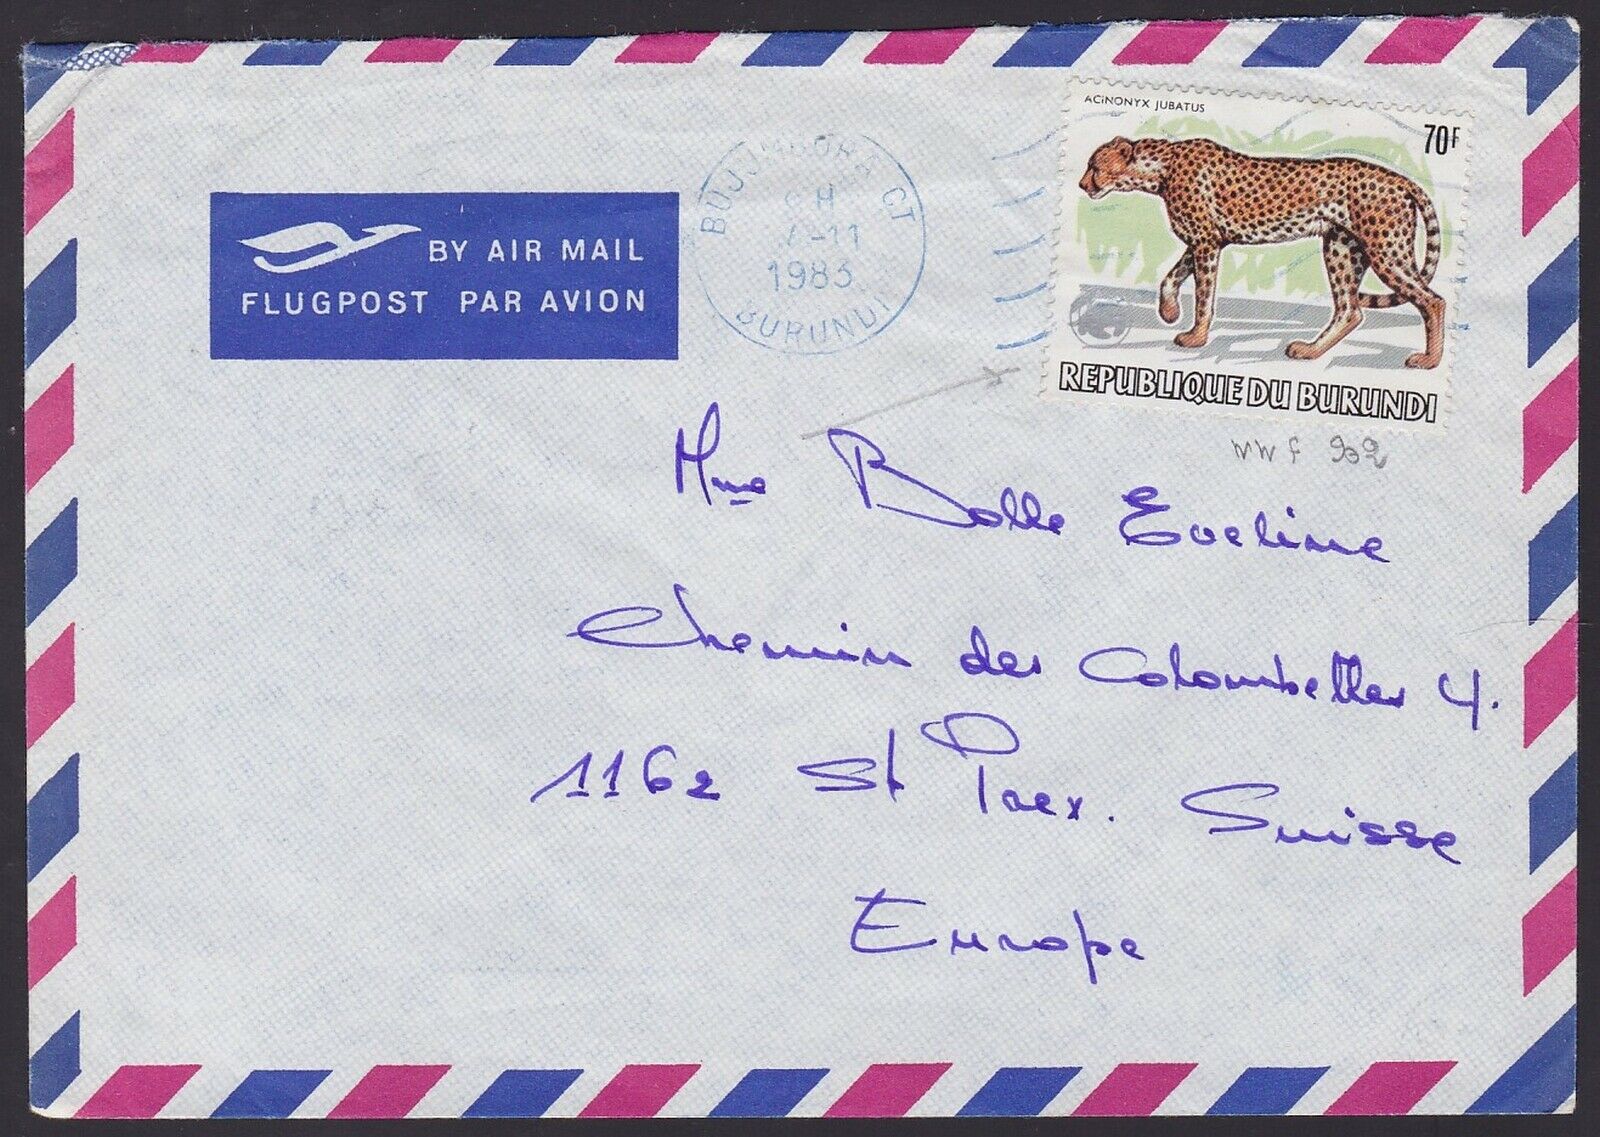 ACINONYX JUBATUS
70F
REPUBLIQUE DU BURUNDI
BUJUMBURA CT
-11
BURUNDI
BY AIR MAIL
FLUGPOST PAR AVION
WWF 902
Mme Bolle Eveline
Chemin des Colombettes 4.
1162 St Prex. Suisse
Europe